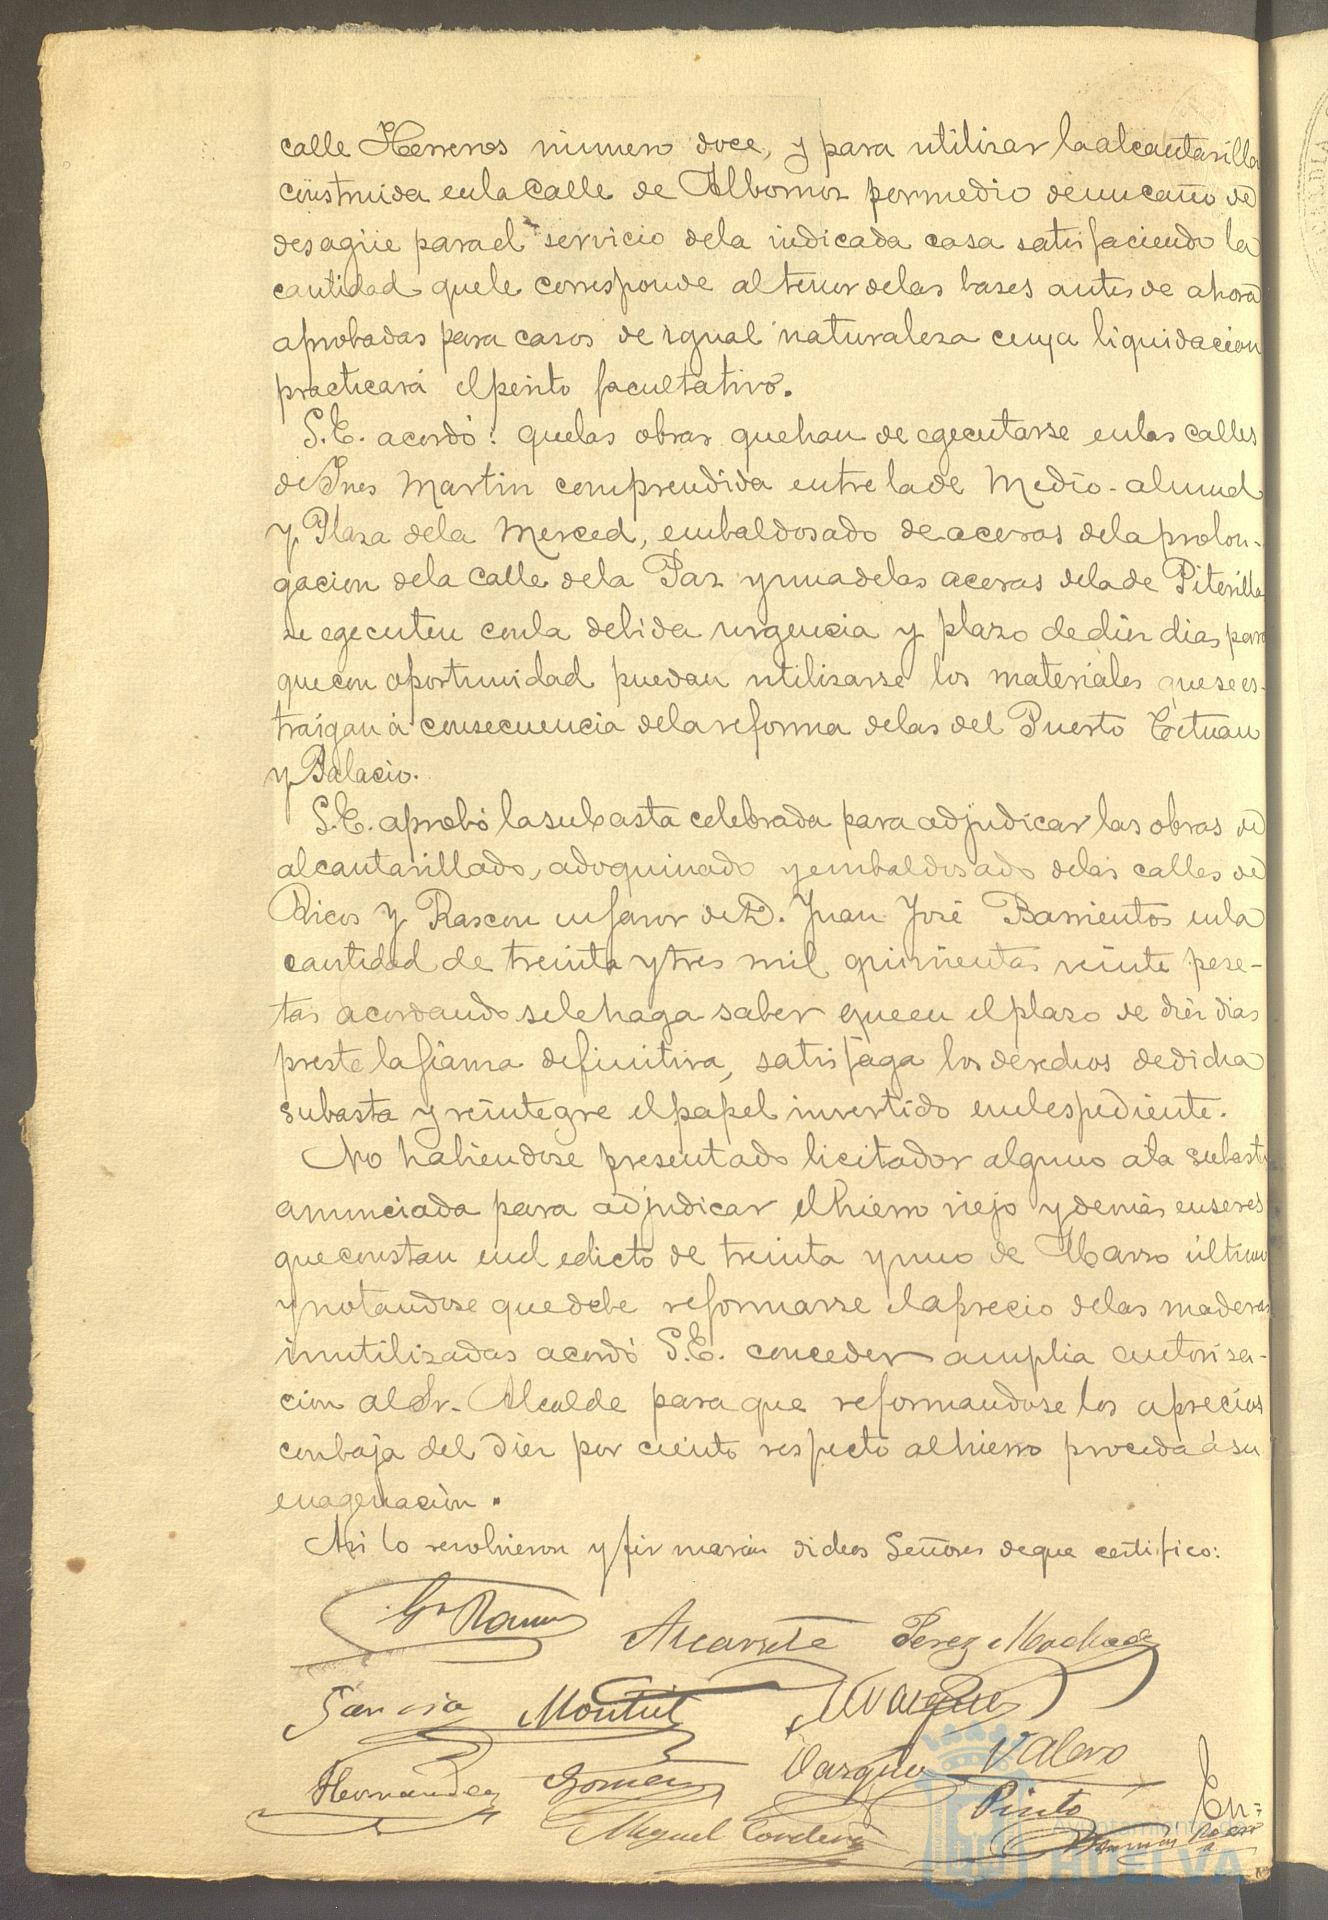 calle Herreros número doce, y para utilizar la alcantarilla
construida en la calle de Albornoz por medio de un caño de
desagüe para el servicio de la indicada casa satisfaciendo la
cantidad que le corresponde al tenor de las bases antes de ahora
aprobadas para casos de igual naturaleza cuya liquidacion
practicará el perito facultativo.
S.E. acordó: que las obras que han de egecutarse en las calles
de Ines Martin comprendida entre la de Medio-almud
y Plaza de la Merced, embaldosado de aceras de la prolon-
gacion de la calle de la Paz y una de las aceras de la de Piterilla
se egecuten con la debida urgencia y plazo de diez dias para
que con oportunidad puedan utilizarse los materiales que se es-
traigan á consecuencia de la reforma de las del Puerto Tetuan
y Palacio.
S.E. aprobó la subasta celebrada para adjudicar las obras de
alcantarillado, adoquinado y embaldosado de las calles de
Ricos y Rascon en favor de D. Juan José Barrientos en la
cantidad de treinta y tres mil quinientas veinte pese-
tas acordando se le haga saber que en el plazo de diez dias
preste la fianza definitiva, satisfaga los derechos de dicha
subasta y reintegre el papel invertido en el espediente.
No habiendose presentado licitador alguno a la subasta
anunciada para adjudicar el hierro viejo y demás enseres
que constan en el edicto de treinta y uno de Marzo último
y notandose que debe reformarse el aprecio de las maderas
inutilizadas acordó S.E. conceder amplia autoriza-
cion al Sr. Alcalde para que reformandose los aprecios
con baja del diez por ciento respecto al hierro proceda á su
enagenacion.
Asi lo resolvieron y firmarán dichos Señores de que certifico:
Gª Ramos Alcarete Perez Machado
Garcia Montiel Marquez
Hernandez Gomez Vazquez Valero
Miguel Cordero Pinto En=
Ayuntamiento de
HUELVA